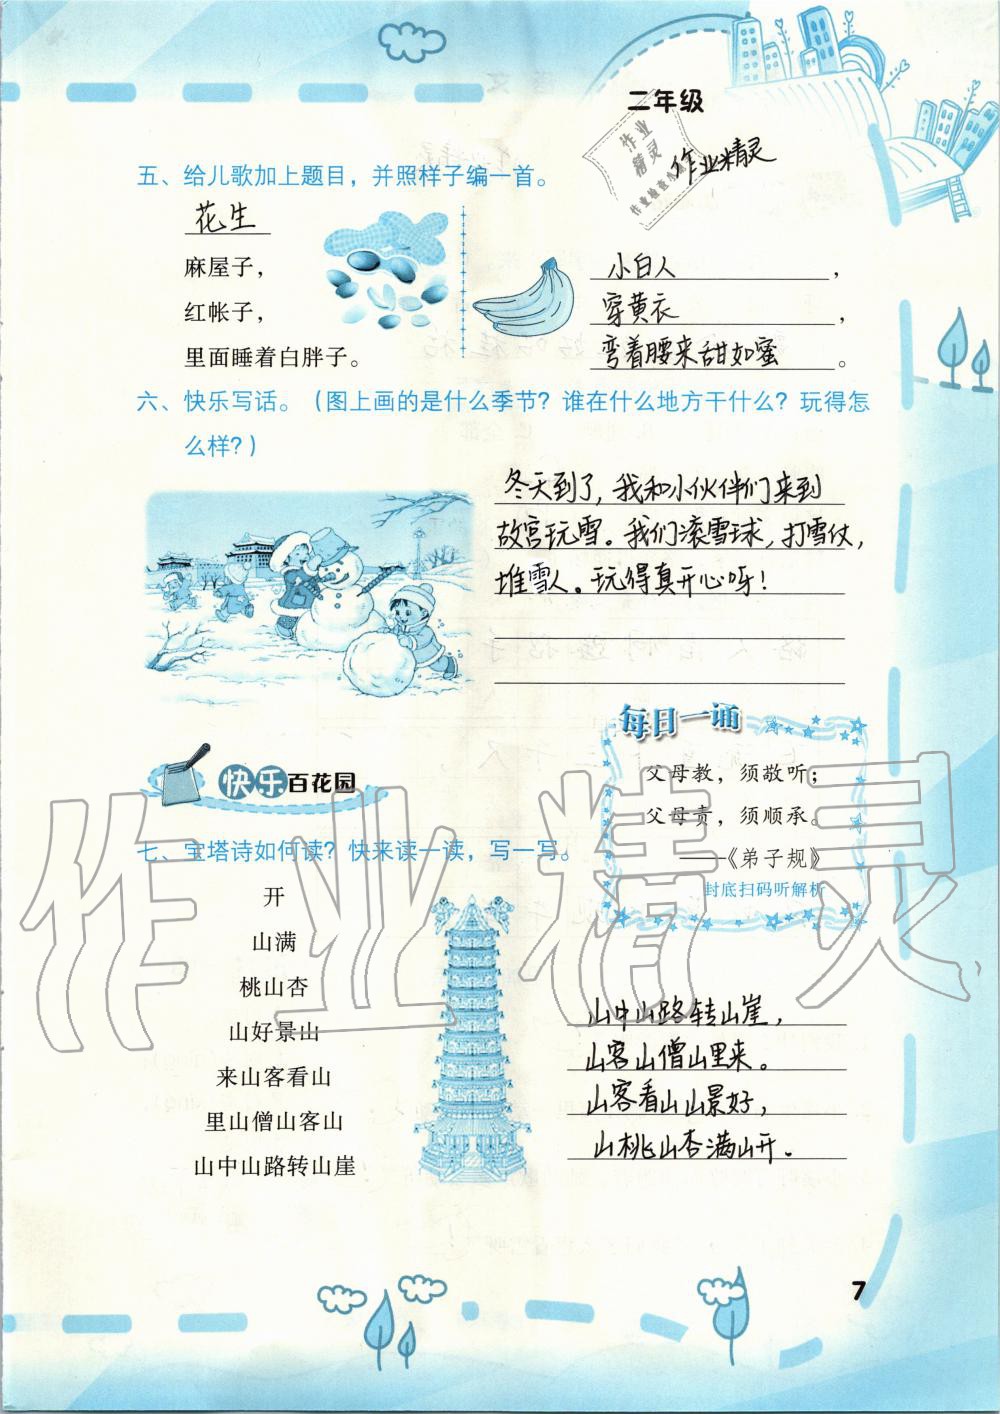 二年级
作业
精灵
作业精灵
五、给儿歌加上题目，并照样子编一首。
花生
麻屋子，
红帐子，
里面睡着白胖子。
小白人，
穿黄衣，
弯着腰来甜如蜜。
六、快乐写话。（图上画的是什么季节？谁在什么地方干什么？玩得怎
么样？）
冬天到了，我和小伙伴们来到
故宫玩雪。我们滚雪球，打雪仗，
堆雪人。玩得真开心呀！
每日一诵
父母教，须敬听；
父母责，须顺承。
——《弟子规》
封底扫码听解析
快乐百花园
七、宝塔诗如何读？快来读一读，写一写。
开
山满
桃山杏
山好景山
来山客看山
里山僧山客山
山中山路转山崖
山中山路转山崖，
山客山僧山里来。
山客看山山景好，
山桃山杏满山开。
作业精灵
7